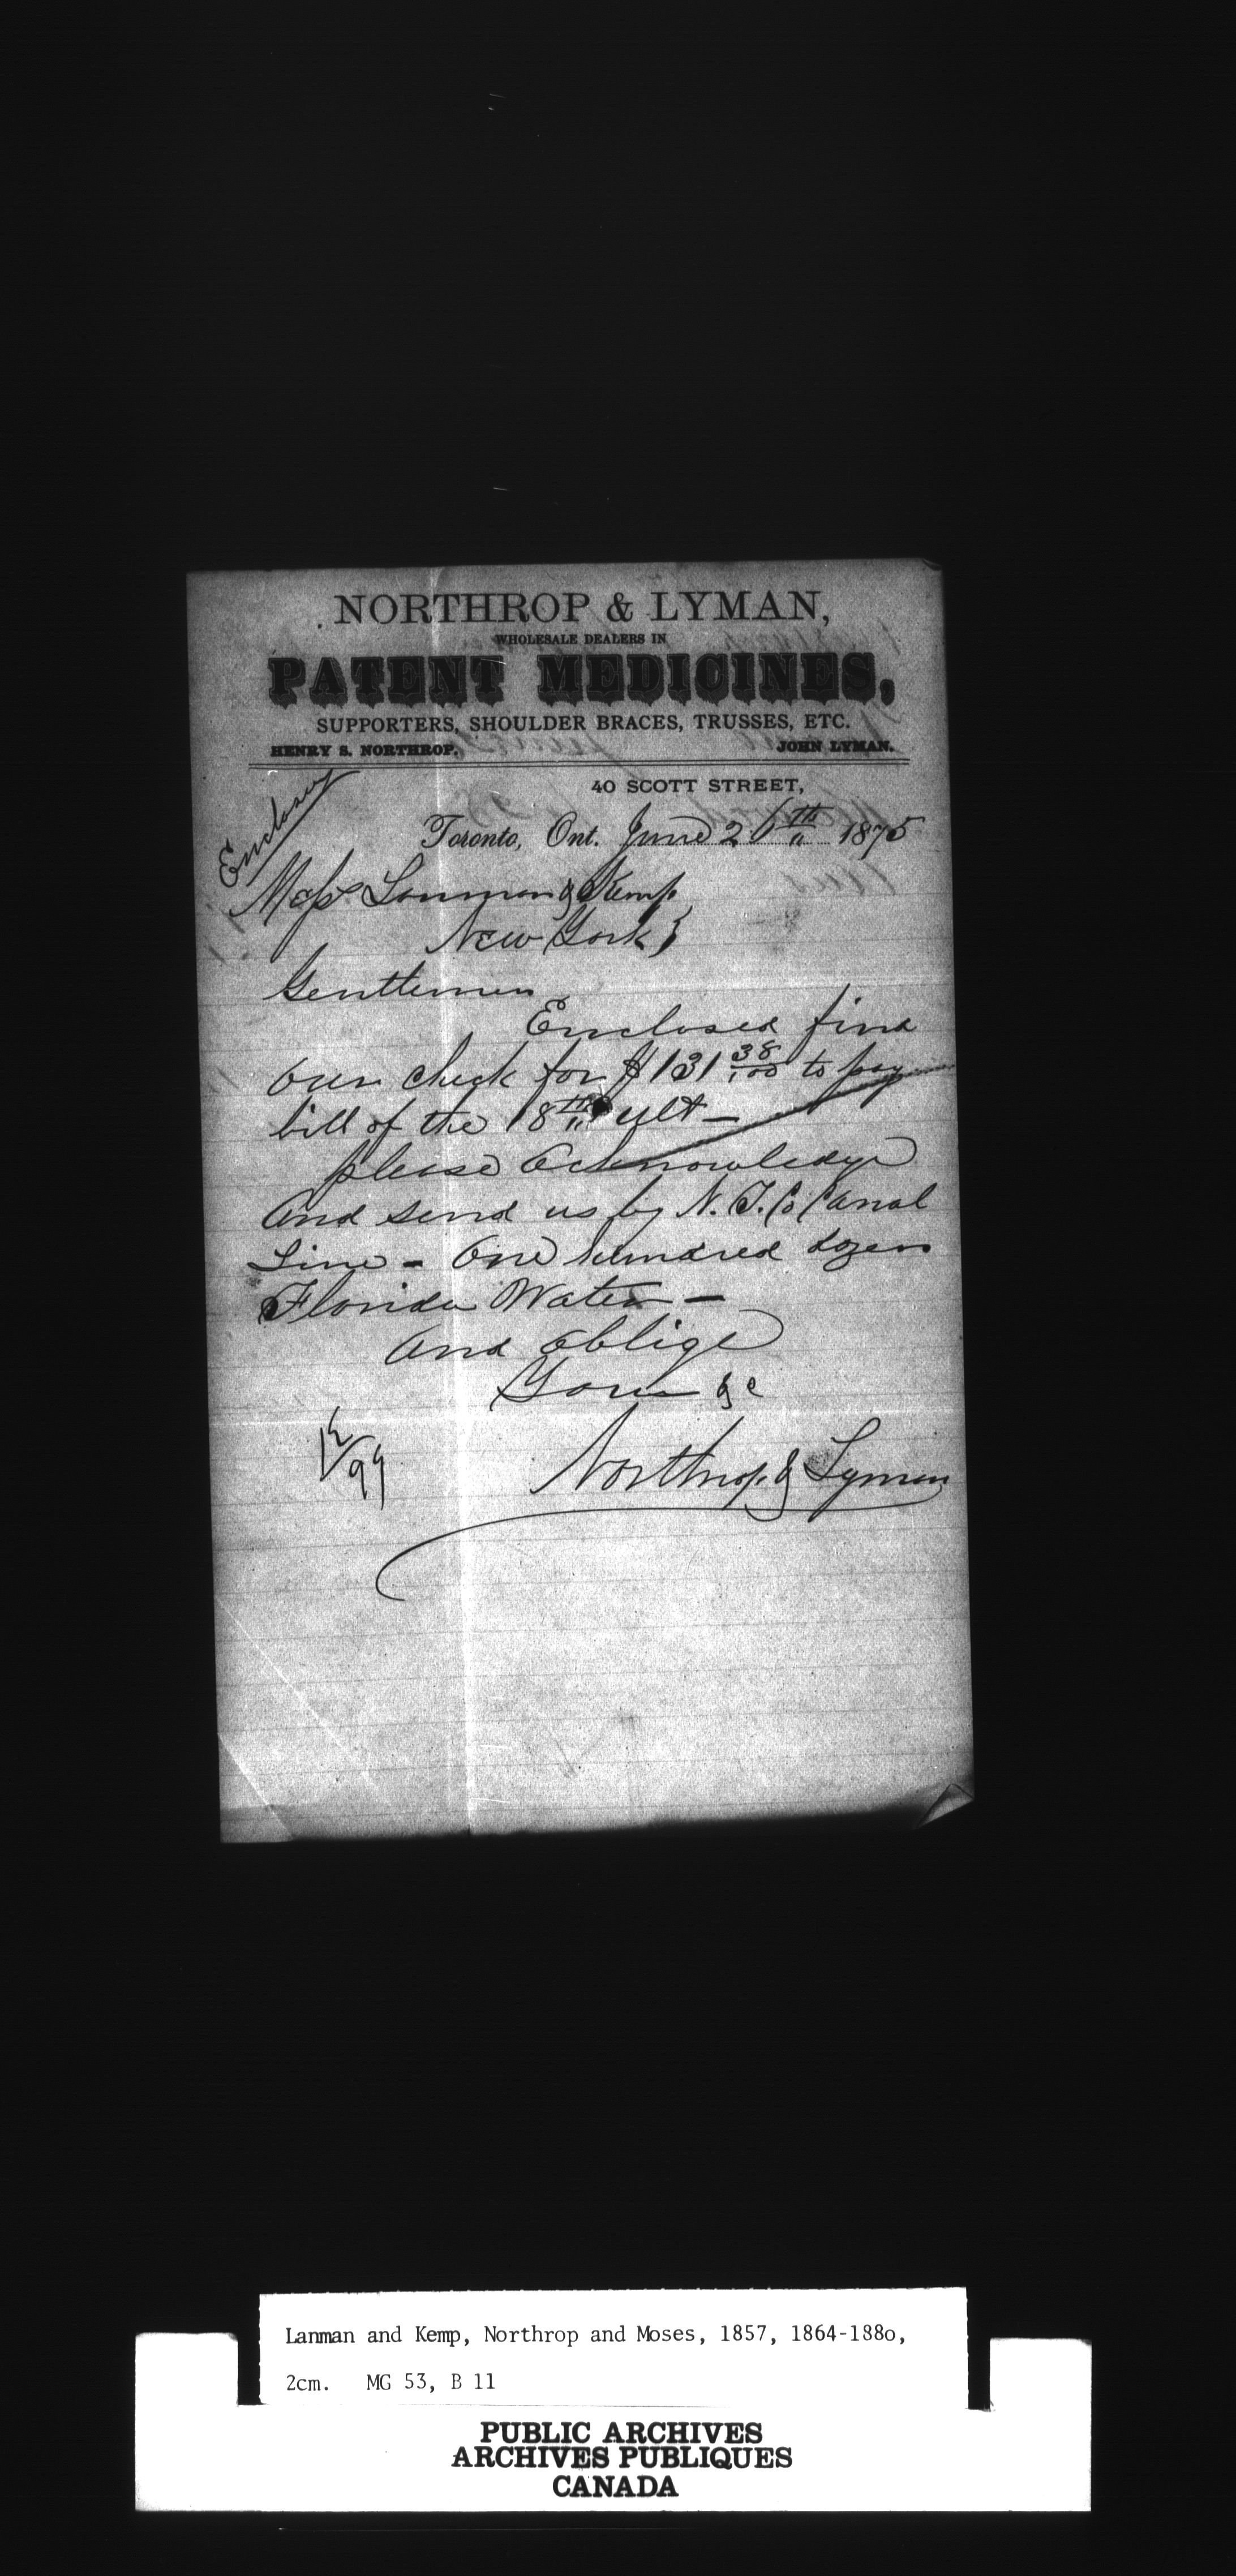 NORTHROP & LYMAN,
WHOLESALE DEALERS IN
PATENT MEDICINES,
SUPPORTERS, SHOULDER BRACES, TRUSSES, ETC.
HENRY S. NORTHROP. JOHN LYMAN.
40 SCOTT STREET,
Toronto, Ont. June 26th 1875
Mess Lanman & Kemp
New York }
Gentlemen
Enclosed find
our check for $131 38/100 to pay
bill of the 18th ult —
please acknowledge
And send us by N. T. Co Canal
Line - One hundred dozen
Florida Water —
And Oblige
Yours &c
Northrop & Lyman
Lanman and Kemp, Northrop and Moses, 1857, 1864-188o,
2cm. MG 53, B 11
PUBLIC ARCHIVES
ARCHIVES PUBLIQUES
CANADA